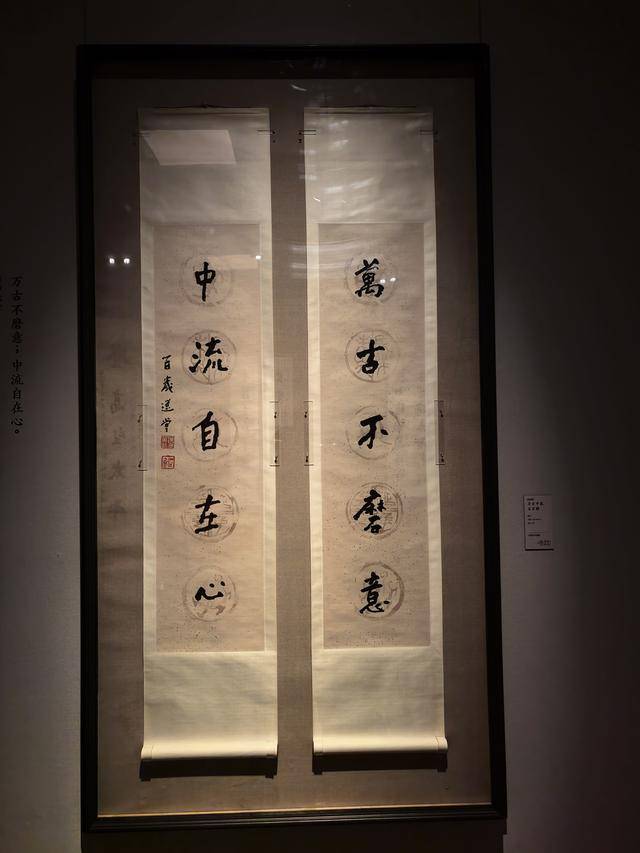 萬古不磨意
中流自在心
百歲選堂
万古不磨意；中流自在心。